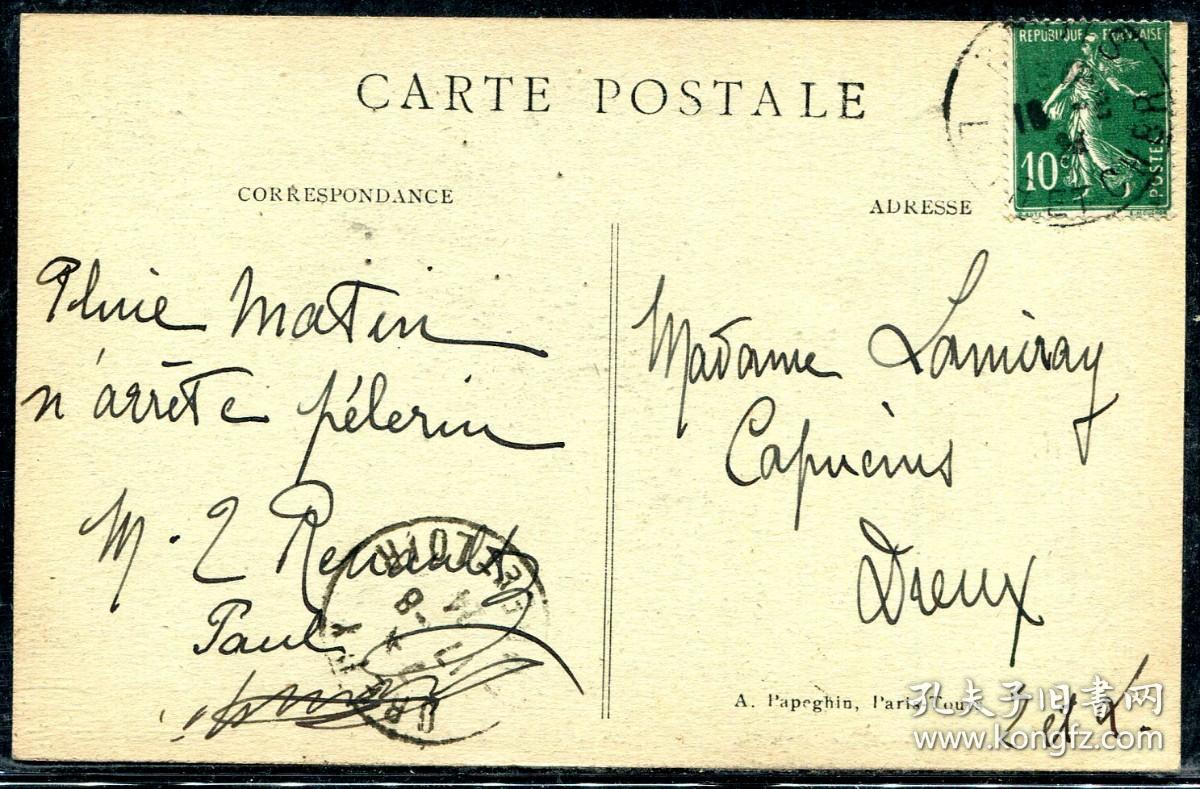 CARTE POSTALE
CORRESPONDANCE
ADRESSE
REPUBLIQUE FRANÇAISE
10c
POSTES
ET CHER
18
Pluie Matin
n'arrête pélerin
M. L Renault
Paul
Madame Lamiray
Capucins
Dreux
E. et L.
A. Papeghin, Paris-Tours
孔夫子旧書网
www.kongfz.com